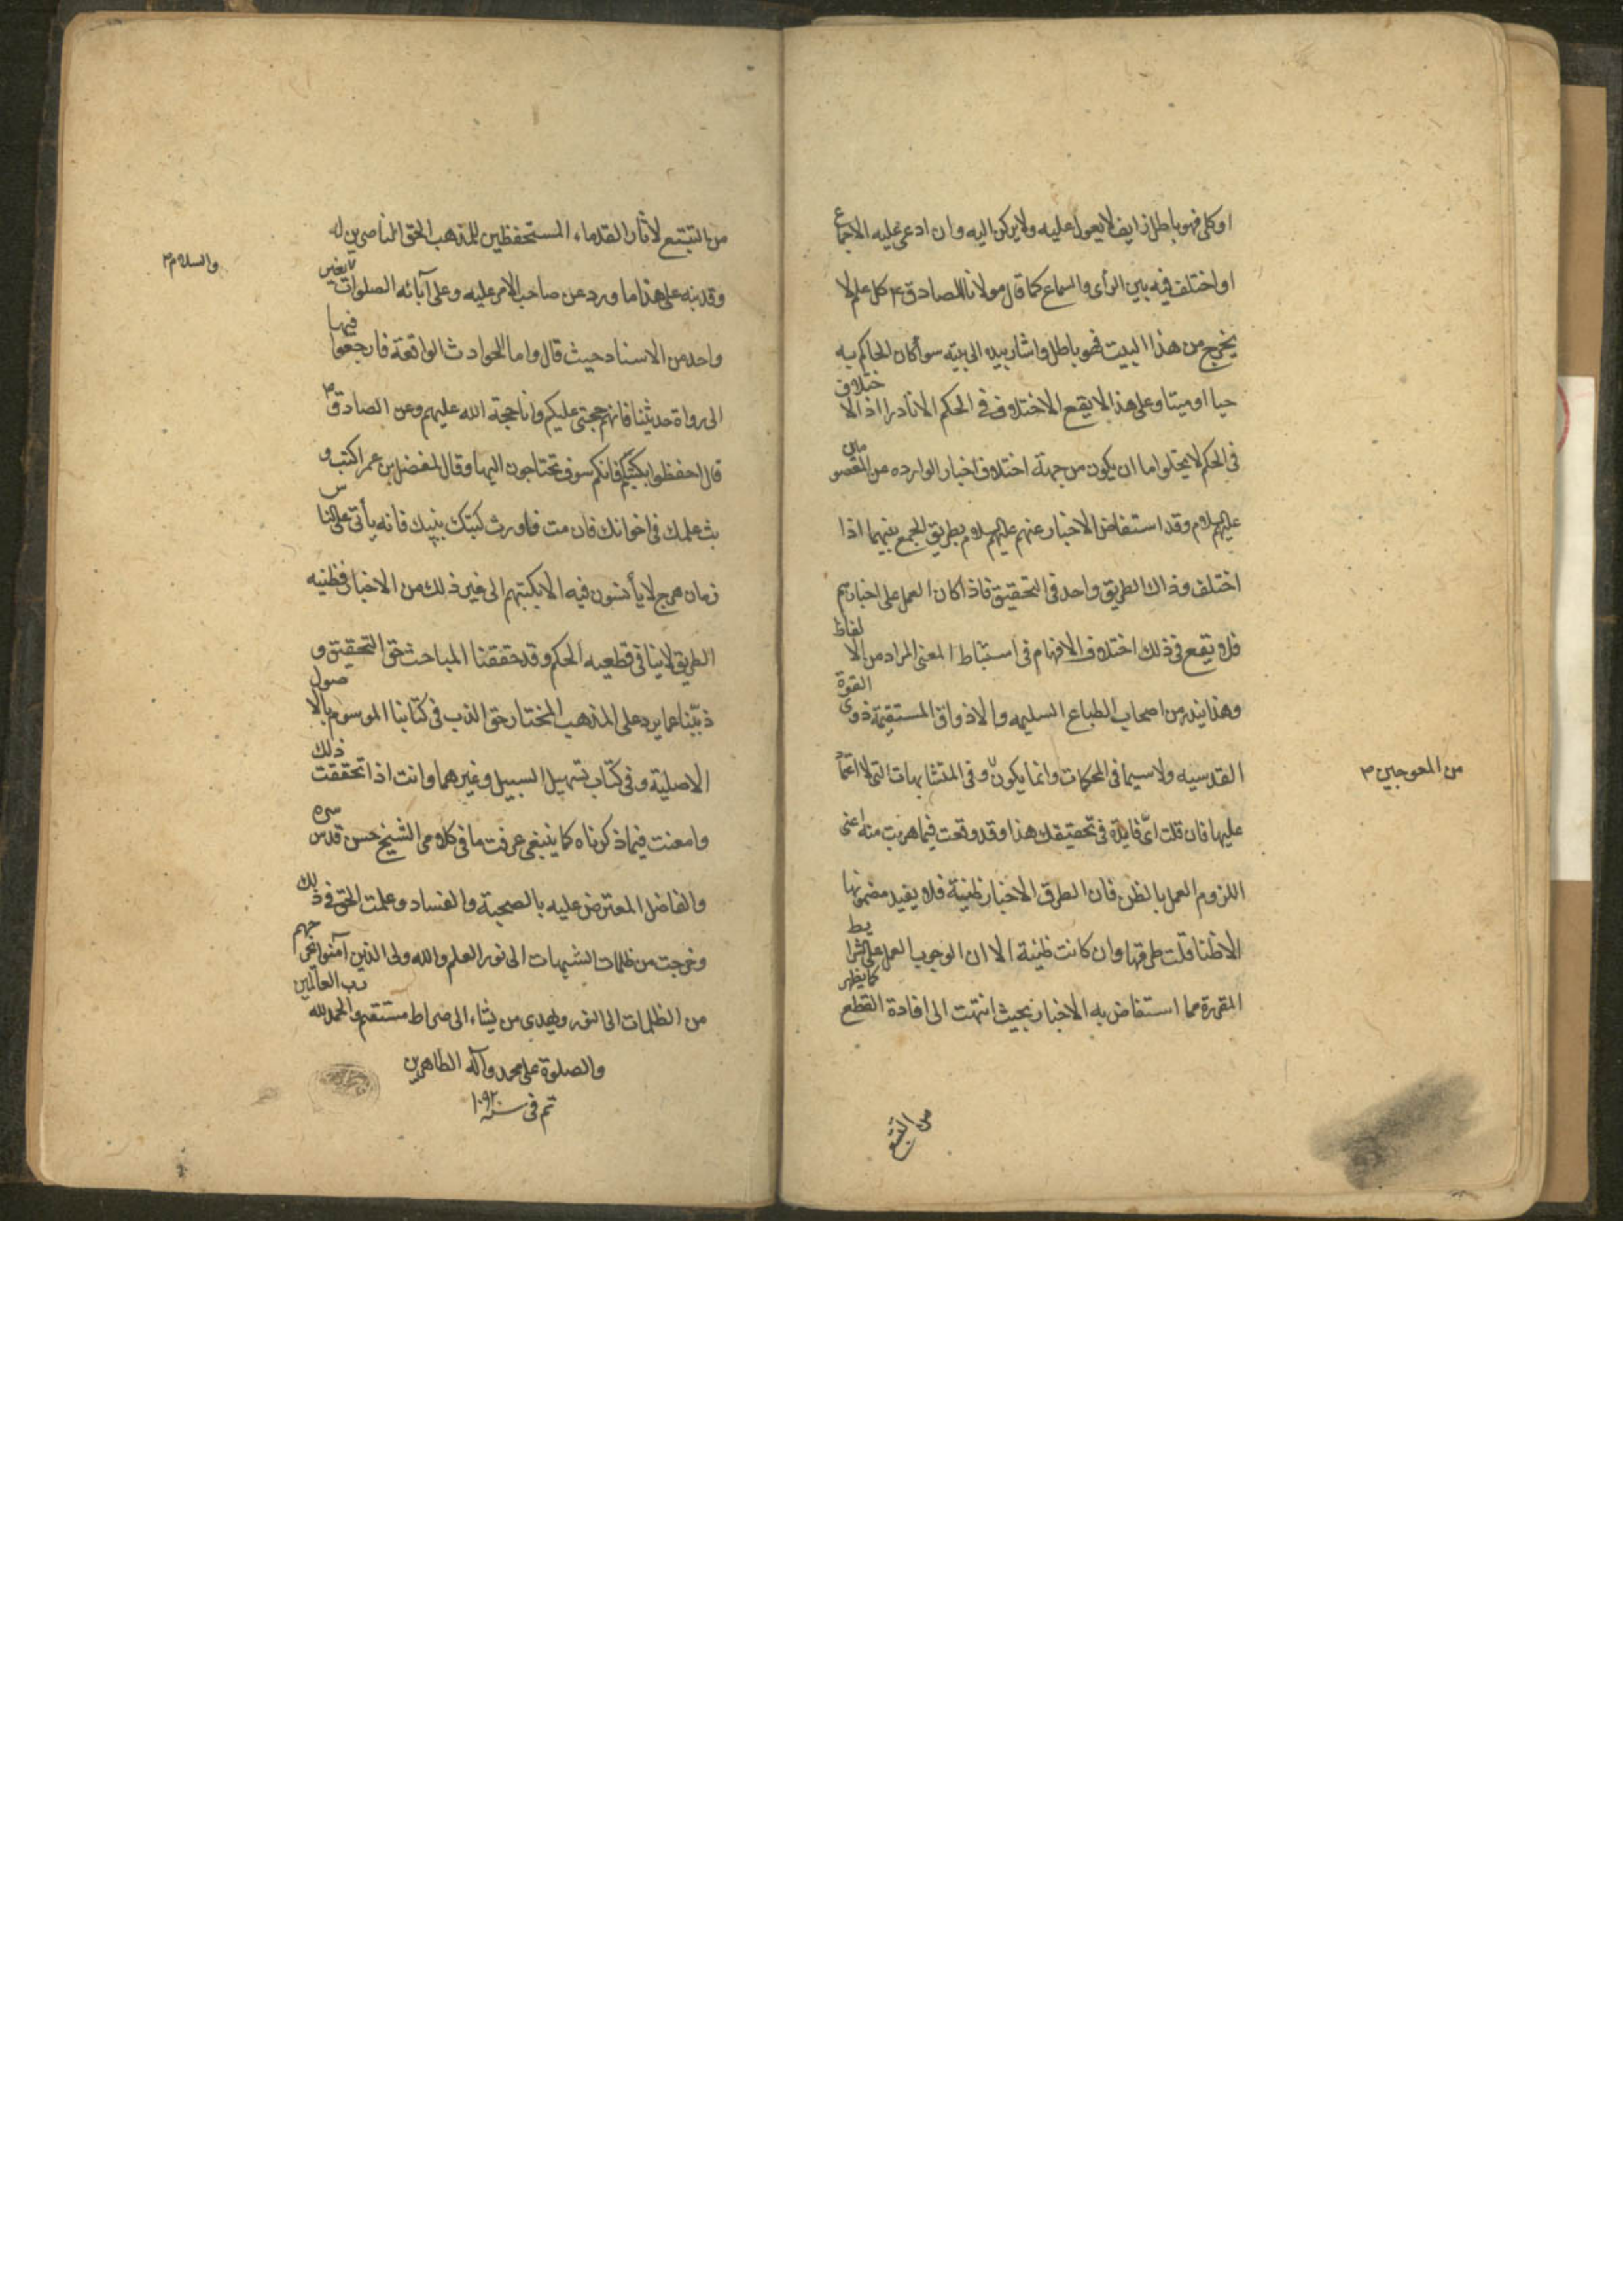 او كلى فهو باطل زايف لا يعول عليه ولا يركن اليه وان ادعى عليه الاجماع
او اختلف فيه بين الرأى والسماع كما قال مولانا الصادق ع كل علم لا
يخرج من هذا البيت فهو باطل واشار بيده الى بيته سوأ كان الحاكم به
حيا او ميتا وعلى هذا لا يقع الاختلاف فى الحكم الا نادرا اذ الاختلاف
فى الحكم لا يخلوا اما ان يكون من جهة اختلاف اخبار الوارده عن المعصومين
عليهم السلام وقد استفاض الاخبار عنهم عليهم السلام بطريق الجمع بينهما اذا
اختلف وذاك الطريق واحد فى التحقيق فاذا كان العمل على اخبارهم
فلا يقع فى ذلك اختلاف الافهام فى استنباط المعنى المراد من الالفاظ
وهذا يندر من اصحاب الطباع السليمه والاذواق المستقيمة ذوى القوة
القدسيه ولا سيما فى المحكمات وانما يكون وفى المتشابهات التى لا اعتماد
من المعوجين ص
عليها فان قلت اىّ فايدة فى تحقيقك هذا وقد وقعت فيما هربت منه اعنى
اللزوم العمل بالظن فان الطرق الاخبار ظنية فلا يفيد مضمونها
الا ظنا قلت طرقها وان كانت ظنية الا ان الوجوب العمل على الشرايط
المقررة مما استفاض به الاخبار بحيث انتهت الى افادة القطع كما يظهر
من التتبع
من التتبع لاثار القدماء المستحفظين للمذهب الحق الناصرين له
والسلام ص
وقد نبه على هذا ما ورد عن صاحب الامر عليه وعلى آبائه الصلوات بغير
واحد من الاسناد حيث قال واما الحوادث الواقعة فارجعوا فيها
الى رواة حديثنا فانهم حجتى عليكم وانا حجة الله عليهم وعن الصادق ع
قال احفظوا بكتبكم فانكم سوف تحتاجون اليها وقال لمفضل بن عمر اكتب و
بث علمك فى اخوانك فان مت فاورث كتبك بنيك فانه يأتى على الناس
زمان هرج لا يأنسون فيه الا بكتبهم الى غير ذلك من الاخبار فظنيه
الطريق لا ينافى قطعيه الحكم وقد حققنا المباحث حق التحقيق و
ذببنا عما يرد على المذهب المختار حق الذب فى كتابنا الموسوم بالاصول
الاصلية وفى كتاب تسهيل السبيل وغيرهما وانت اذا تحققت ذلك
وامعنت فيما ذكرناه كما ينبغى عرفت ما فى كلامى الشيخ حسن قدس سره
والفاضل المعترض عليه بالصحة والفساد وعلمت الحق فى ذلك
وخرجت من ظلمات الشبهات الى نور العلم والله ولى الذين آمنوا يخرجهم
من الظلمات الى النور ويهدى من يشاء الى صراط مستقيم والحمد لله رب العالمين
والصلوة على محمد وآله الطاهرين
تم فى سنه ١٠٩٢